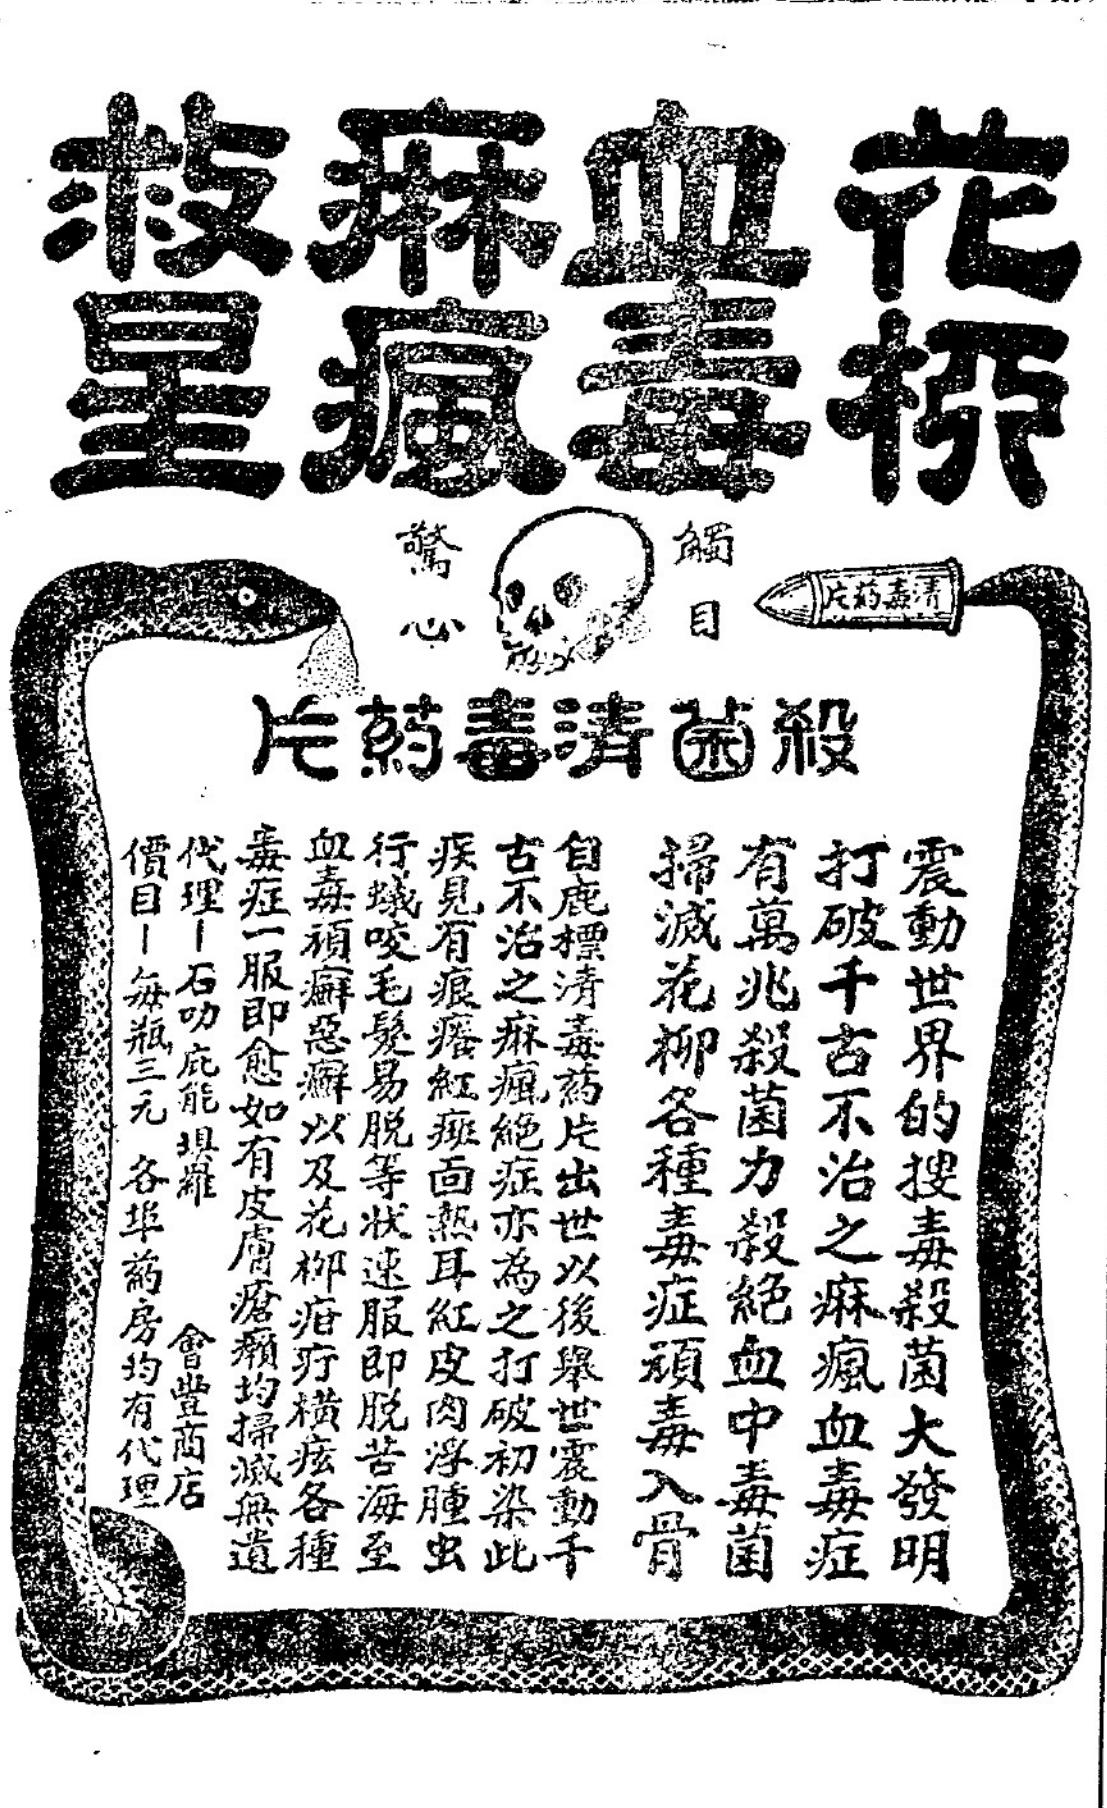 花柳
血毒
麻瘋
救星
觸目
驚心
清毒葯片
殺菌清毒葯片
震動世界的搜毒殺菌大發明
打破千古不治之麻瘋血毒症
有萬兆殺菌力殺絕血中毒菌
掃滅花柳各種毒症頑毒入骨
自鹿標清毒葯片出世以後舉世震動千
古不治之麻瘋絕症亦為之打破初染此
疾見有痕癢紅斑面熱耳紅皮肉浮腫虫
行蟻咬毛髮易脱等狀速服即脱苦海至
血毒頑癬惡癬以及花柳疳疔橫痃各種
毒症一服即愈如有皮膚瘡癩均掃滅無遺
代理—石叻庇能垻羅 會豐商店
價目—每瓶三元 各埠葯房均有代理